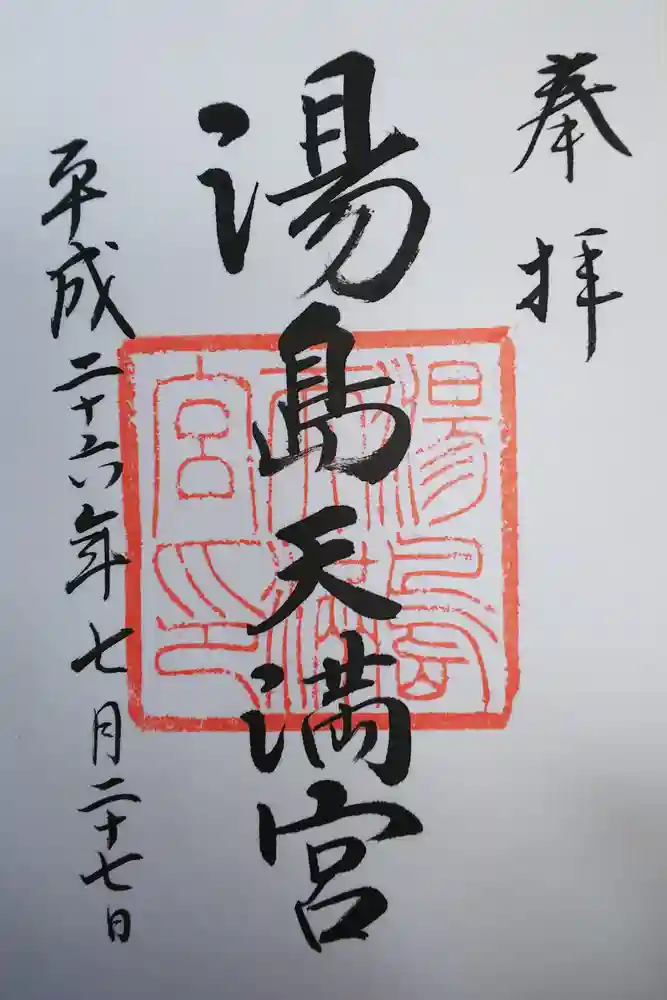 奉拝
湯島天満宮
平成二十六年七月二十七日
湯島天満宮印